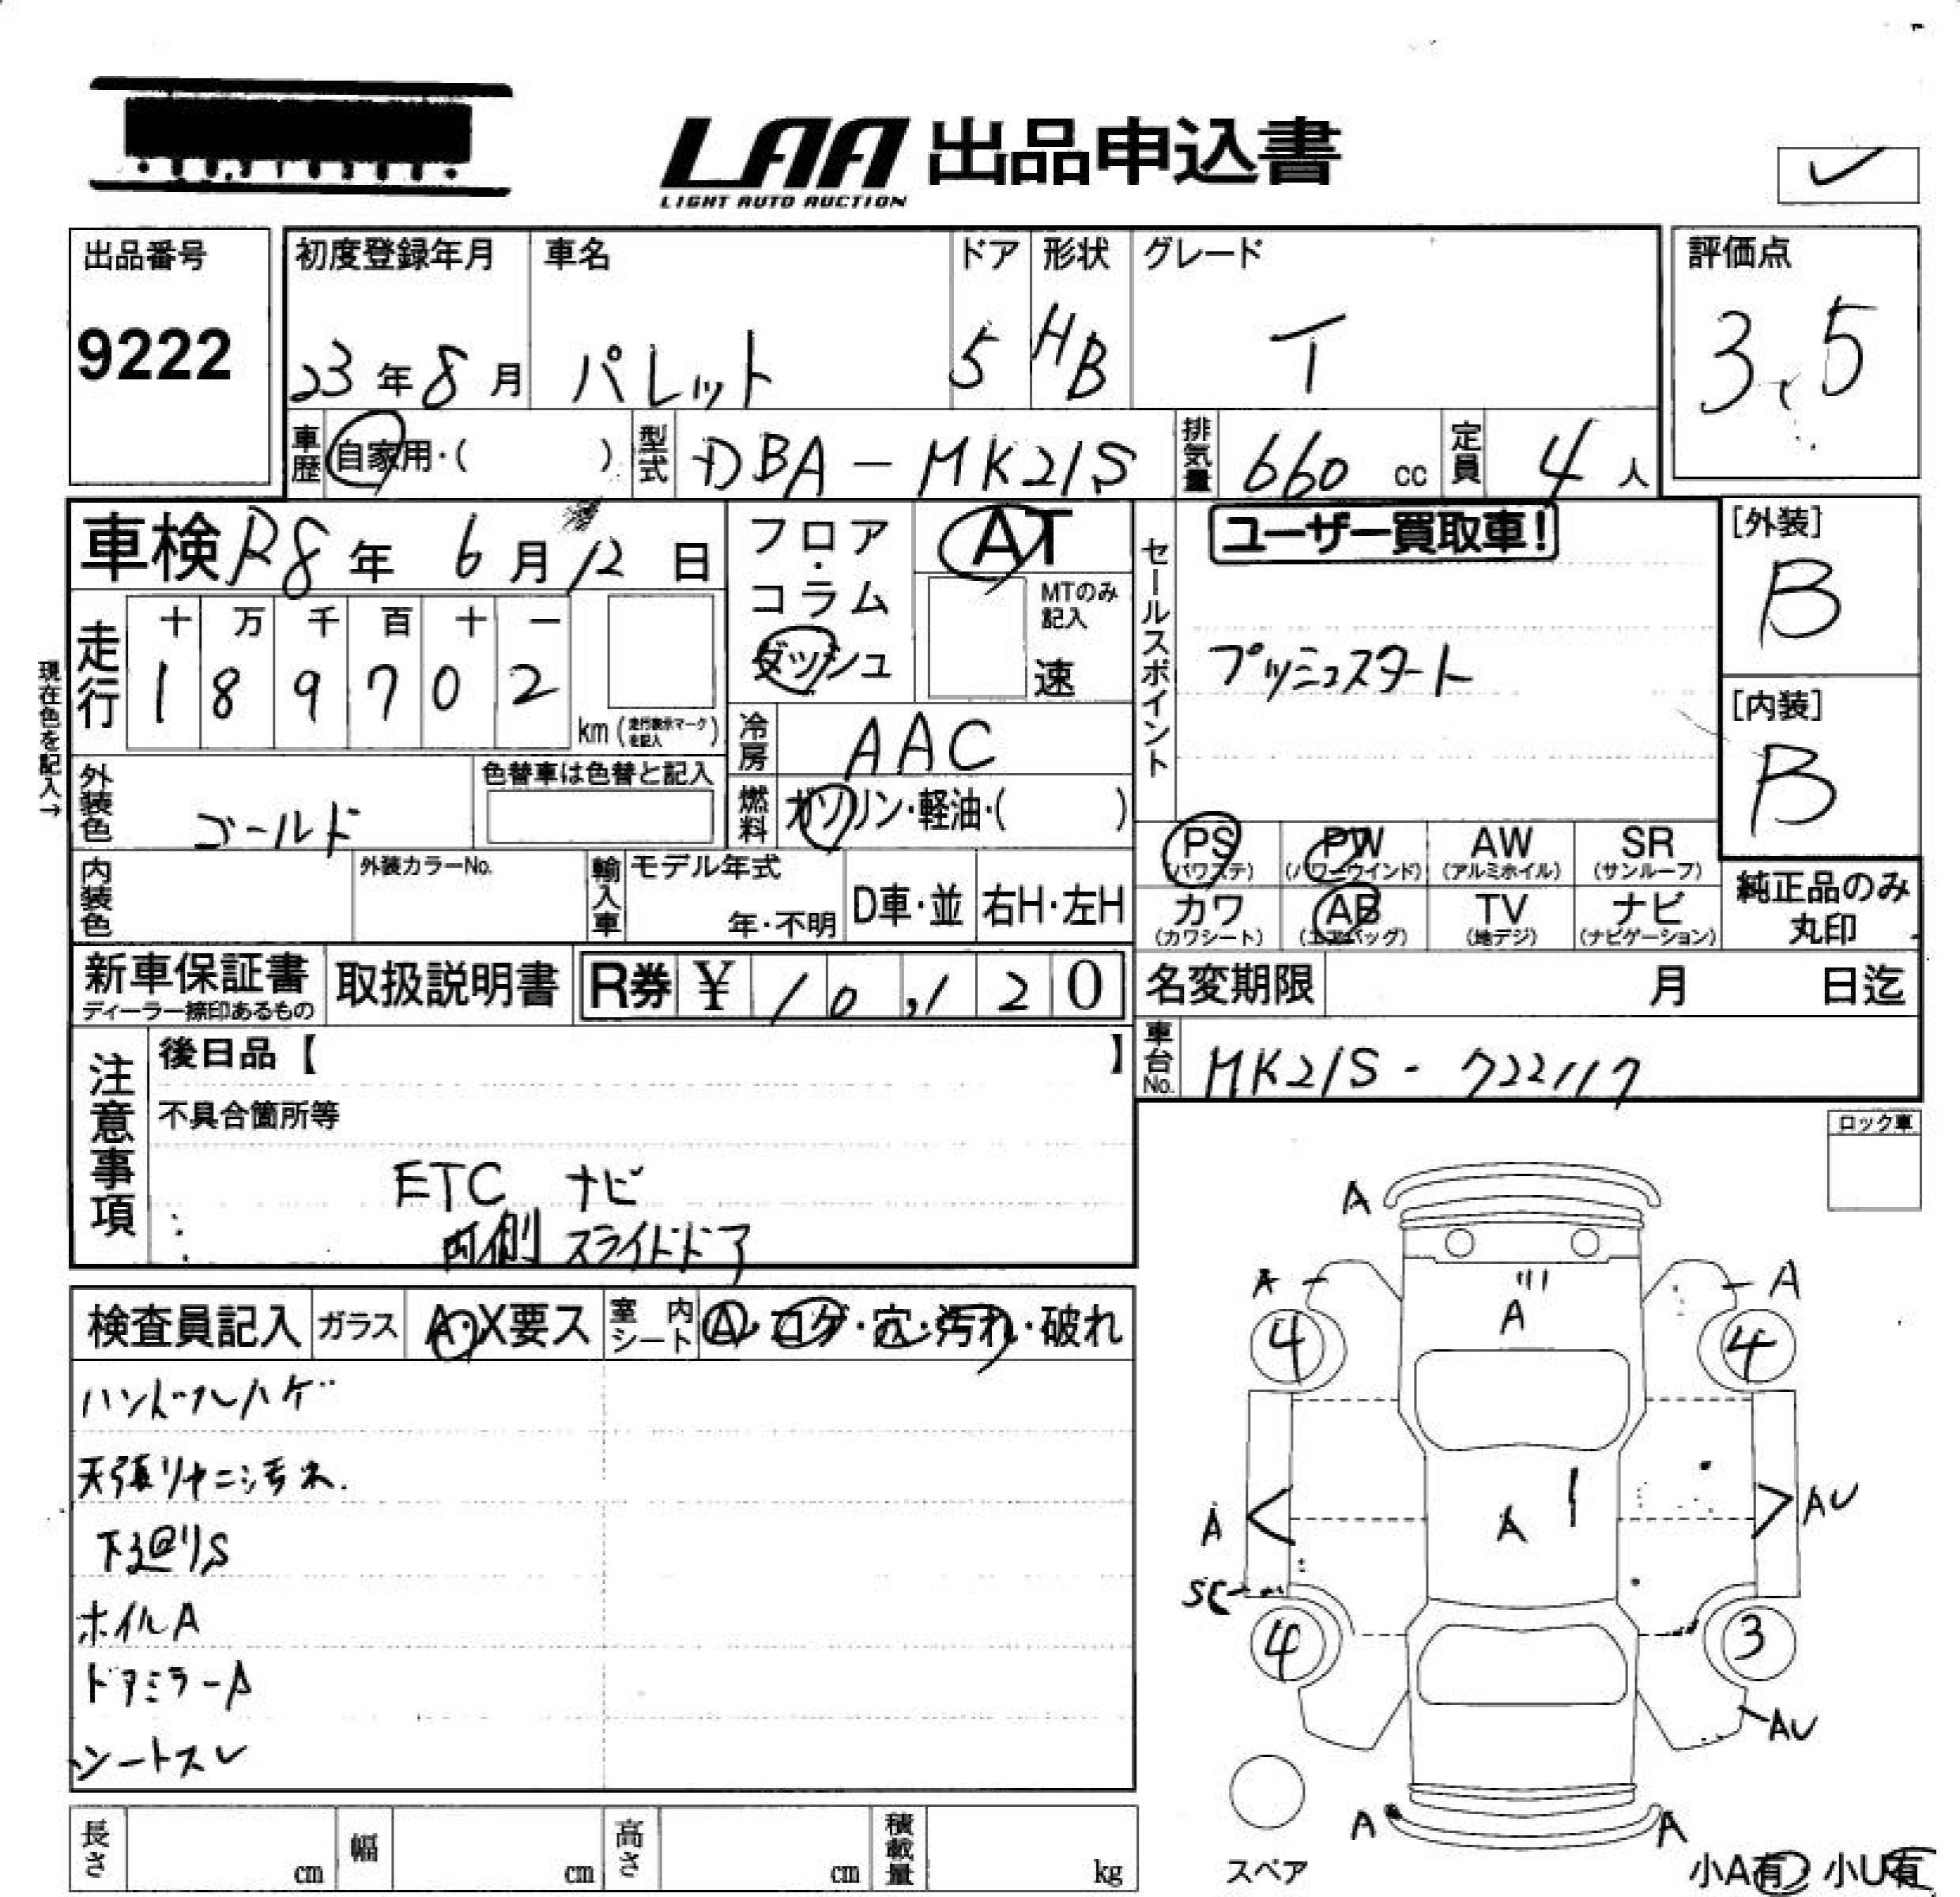 LAA 出品申込書
LIGHT AUTO AUCTION
出品番号
9222
初度登録年月
23年8月
車名
パレット
ドア
5
形状
HB
グレード
T
評価点
3.5
車歴
自家用・( )
型式
DBA-MK21S
排気量
660 cc
定員
4人
車検 R8年 6月12日
フロア・コラム
ダッシュ
AT
MTのみ記入
速
セールスポイント
ユーザー買取車!
プッシュスタート
[外装]
B
[内装]
B
現在色を記入→
走行
十 万 千 百 十 一
1 8 9 7 0 2
km (走行表示マークを記入)
冷房
AAC
外装色
ゴールド
色替車は色替と記入
燃料
ガソリン・軽油・( )
PS (パワステ)
PW (パワーウインド)
AW (アルミホイル)
SR (サンルーフ)
カワ (カワシート)
AB (エアバッグ)
TV (地デジ)
ナビ (ナビゲーション)
純正品のみ丸印
内装色
外装カラーNo.
輸入車
モデル年式
年・不明
D車・並
右H・左H
新車保証書
ディーラー捺印あるもの
取扱説明書
R券 ¥ 10,120
名変期限
月 日迄
車台No.
MK21S-722117
注意事項
後日品【 】
不具合箇所等
ETC ナビ
両側 スライドドア
ロック車
検査員記入
ガラス
A・X要ス
室内シート
A・コゲ・穴・汚れ・破れ
ハンドルハゲ
天張りヤニ汚れ.
下廻りS
ホイルA
ドアミラーA
シートスレ
A
A
A
A
4
4
A
AU
A
SC
4
3
AU
A
A
スペア
小A有 小U有
長さ
cm
幅
cm
高さ
cm
積載量
kg